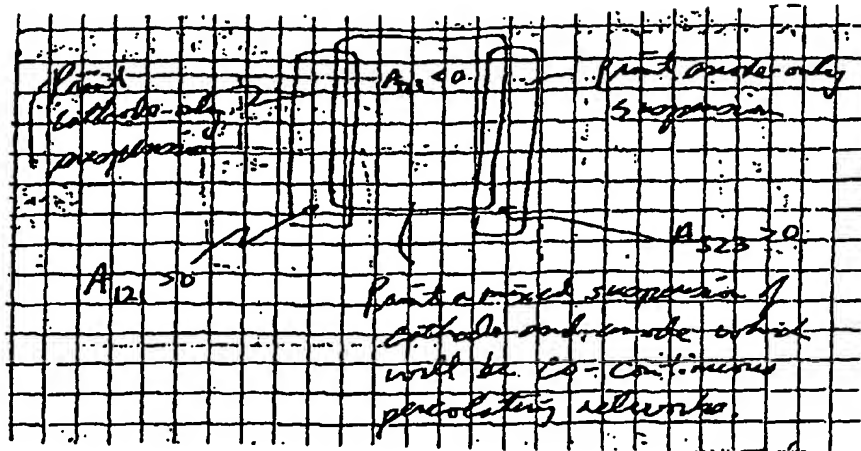 Paint
cathode-only
suspension
A₁₂₃ < 0
Paint anode-only
suspension
A₁₂₁ > 0
A₃₂₃ > 0
Paint a mixed suspension of
cathode and anode which
will be co-continuous
percolating networks.